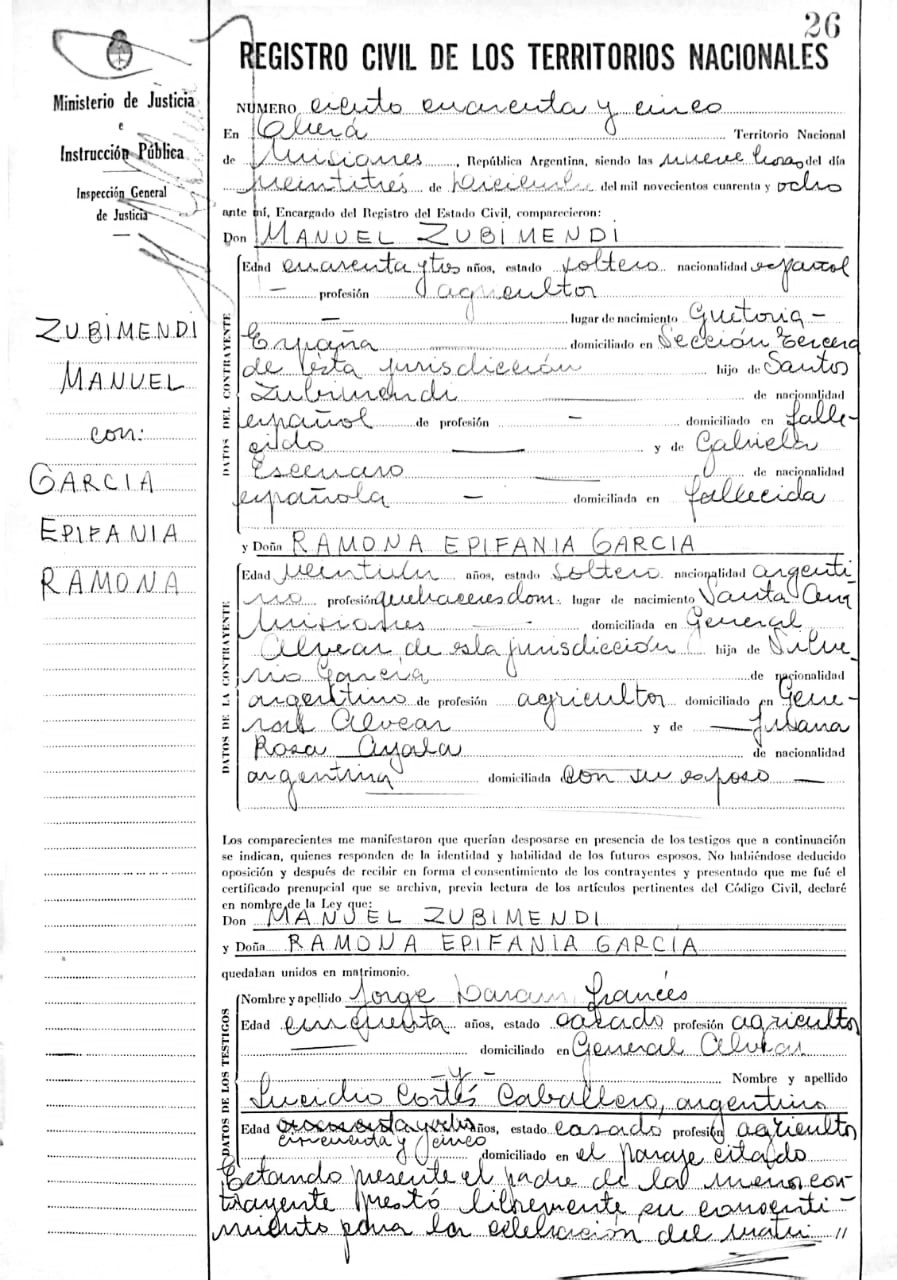 26
REGISTRO CIVIL DE LOS TERRITORIOS NACIONALES
Ministerio de Justicia
e
Instrucción Pública
Inspección General
de Justicia
ZUBIMENDI
MANUEL
con:
GARCIA
EPIFANIA
RAMONA
NUMERO ciento cuarenta y cinco
En Oberá Territorio Nacional
de Misiones, República Argentina, siendo las nueve horas del día
veintitrés de Diciembre del mil novecientos cuarenta y ocho
ante mí, Encargado del Registro del Estado Civil, comparecieron:
Don MANUEL ZUBIMENDI
DATOS DEL CONTRAYENTE
Edad cuarenta y tos años, estado soltero nacionalidad español
— profesión agricultor
— lugar de nacimiento Guetoria -
España domiciliado en Sección Tercera
de ésta jurisdicción hijo de Santos
Zubimendi — de nacionalidad
español de profesión — domiciliado en falle-
cido — y de Gabriela
— de nacionalidad
española — domiciliada en fallecida
y Doña RAMONA EPIFANIA GARCIA
DATOS DE LA CONTRAYENTE
Edad años, estado soltero nacionalidad argenti
no profesión quehaceres dom. lugar de nacimiento Santa Ana
Misiones — domiciliada en General
Alvear de esta jurisdicción hija de Silve-
rio García de nacionalidad
argentino de profesión agricultor domiciliado en Gene-
ral Alvear y de — Juana
Rosa Ayala de nacionalidad
argentina domiciliada con su esposo —
Los comparecientes me manifestaron que querían desposarse en presencia de los testigos que a continuación
se indican, quienes responden de la identidad y habilidad de los futuros esposos. No habiéndose deducido
oposición y después de recibir en forma el consentimiento de los contrayentes y presentado que me fué el
certificado prenupcial que se archiva, previa lectura de los artículos pertinentes del Código Civil, declaré
en nombre de la Ley que:
Don MANUEL ZUBIMENDI
y Doña RAMONA EPIFANIA GARCIA
quedaban unidos en matrimonio.
DATOS DE LOS TESTIGOS
Nombre y apellido Jorge francés
Edad cincuenta años, estado casado profesión agricultor
— domiciliado en General Alvear
—y— Nombre y apellido
Lucidio Cortés Caballero, argentino
Edad años, estado casado profesión agricultor
cincuenta y cinco domiciliado en el paraje citado
Estando presente el padre de la menor con-
trayente prestó libremente su consenti-
miento para la celebración del matri //